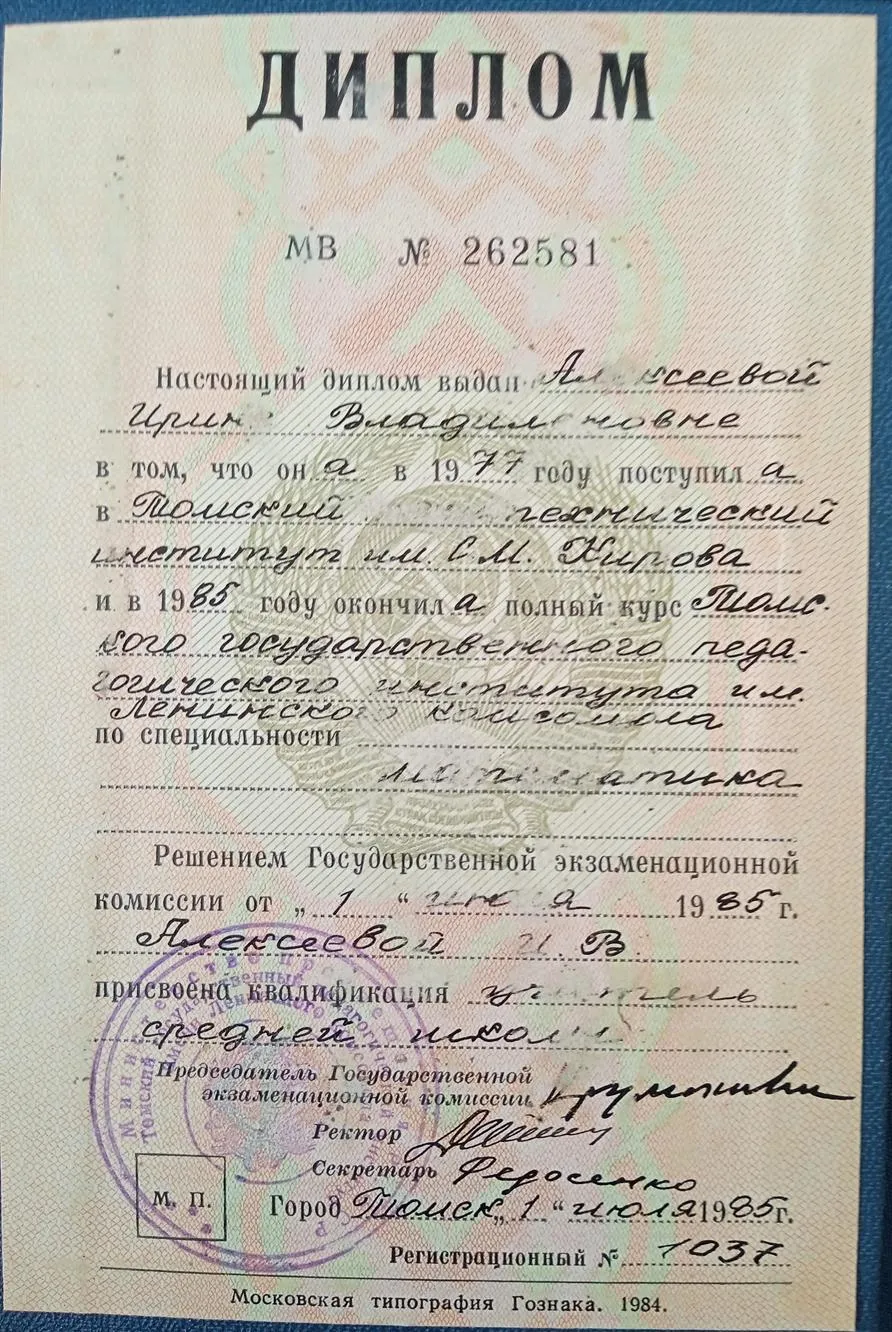 ДИПЛОМ
МВ № 262581
Настоящий диплом выдан Алексеевой
Ирине Владиленовне
в том, что он а в 1977 году поступил а
в Томский политехнический
институт им. С.М. Кирова
и в 1985 году окончил а полный курс Томс-
кого государственного педа-
гогического института им.
Ленинского комсомола
по специальности
математика
Решением Государственной экзаменационной
комиссии от „ 1 “ 1985 г.
Алексеевой И В
присвоена квалификация учитель
средней школы
Председатель Государственной
экзаменационной комиссии
Ректор
Секретарь Федосенко
М. П.
Город Томск „ 1 “ июля 1985г.
Регистрационный № 1037
Московская типография Гознака. 1984.